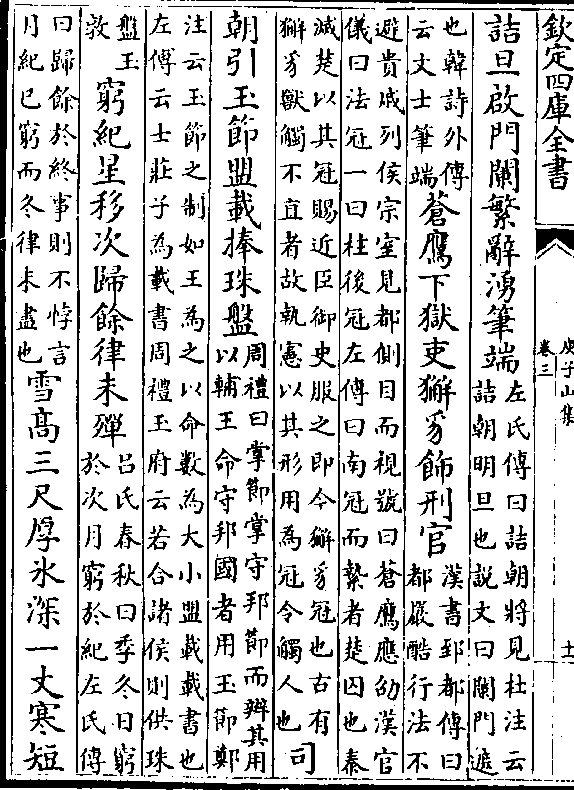 欽定四庫全書
庾子山集
卷三
十一
詰旦啟門闌繁辭湧筆端
左氏傳曰詰朝將見杜注云
詰朝明旦也説文曰闌門遮
也韓詩外傳
云文士筆端
蒼鷹下獄吏獬豸飾刑官
漢書郅都傳曰
都嚴酷行法不
避貴戚列侯宗室見都側目而視號曰蒼鷹應劭漢官
儀曰法冠一曰柱後冠左傳曰南冠而縶者楚囚也秦
滅楚以其冠賜近臣御史服之即今獬豸冠也古有
獬豸獸觸不直者故執憲以其形用為冠令觸人也
司
朝引玉節盟載捧珠盤
周禮曰掌節掌守邦節而辨其用
以輔王命守邦國者用玉節鄭
注云玉節之制如王為之以命數為大小盟載載書也
左傳云士莊子為載書周禮玉府云若合諸侯則供珠
盤玉
敦
窮紀星移次歸餘律未殫
吕氏春秋曰季冬日窮
於次月窮於紀左氏傳
曰歸餘於終事則不悖言
月紀已窮而冬律未盡也
雪高三尺厚氷深一丈寒短